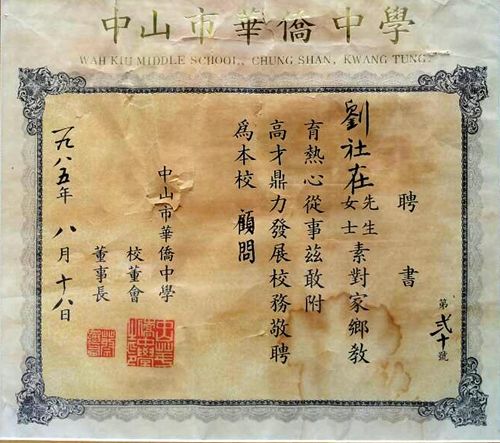 中山市華僑中學
WAH KIU MIDDLE SCHOOL, CHUNG SHAN, KWANG TUNG
聘書
第弍十號
劉社在先生女士素對家鄉教
育熱心從事茲敢附
高才鼎力發展校務敬聘
爲本校 顧問
中山市華僑中學
校董會
董事長
一九八五年 八月十八日